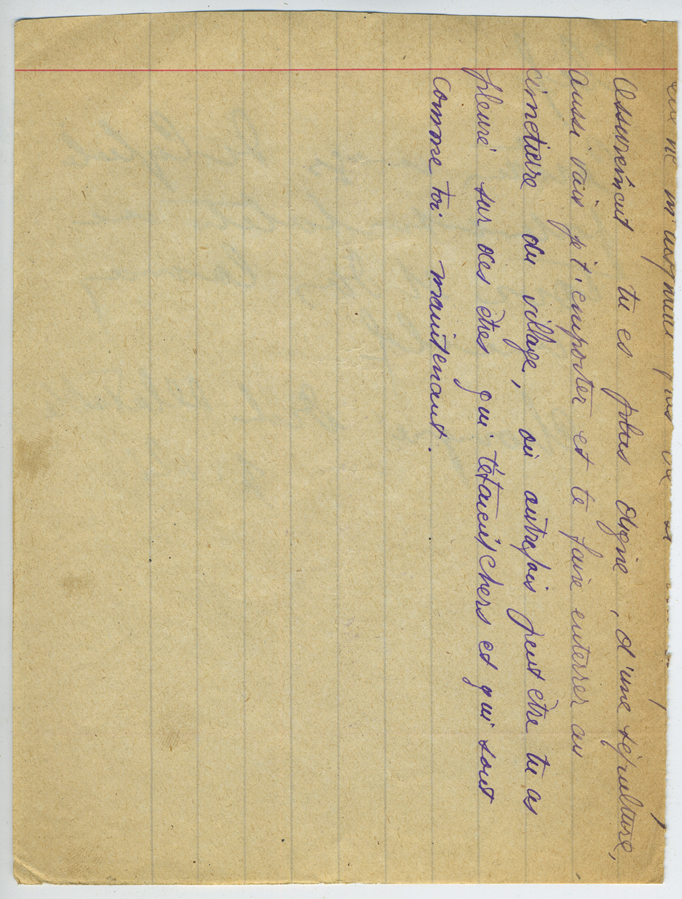 Assurément tu es plus digne, d'une sépulture,
aussi vais je t'emporter et te faire enterrer au
cimetière du village, où autrefois peut être tu as
pleuré sur des êtres qui t'étaient chers et qui sont
comme toi maintenant.